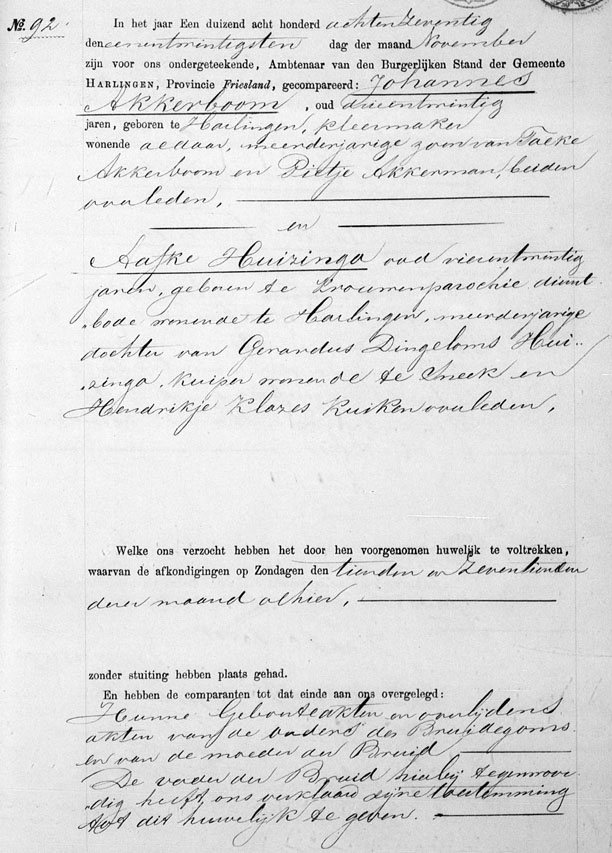 No. 92.
In het jaar Een duizend acht honderd acht en zeventig
den eenentwintigsten dag der maand November
zijn voor ons ondergeteekende, Ambtenaar van den Burgerlijken Stand der Gemeente
HARLINGEN, Provincie Friesland, gecompareerd: Johannes
Akkerboom, oud drieentwintig
jaren, geboren te Harlingen, kleermaker
wonende aldaar, meerderjarige zoon van Taeke
Akkerboom en Pietje Akkerman, beiden
overleden,
en
Aafke Huizinga oud vierentwintig
jaren, geboren te Vrouwenparochie, dienst-
bode wonende te Harlingen, meerderjarige
dochter van Gerardus Dingeloms Hui-
zinga, kuiper wonende te Sneek en
Hendrikje Klazes Kuiken overleden,
Welke ons verzocht hebben het door hen voorgenomen huwelijk te voltrekken,
waarvan de afkondigingen op Zondagen den tienden en zeventienden
dezer maand alhier,
zonder stuiting hebben plaats gehad.
En hebben de comparanten tot dat einde aan ons overgelegd:
Hunne Geboorteakten en overlijdens
akten van de ouders des Bruidegoms
en van de moeder der Bruid
De vader der Bruid hierbij tegenwoor
dig heeft ons verklaard zijne toestemming
tot dit huwelijk te geven.